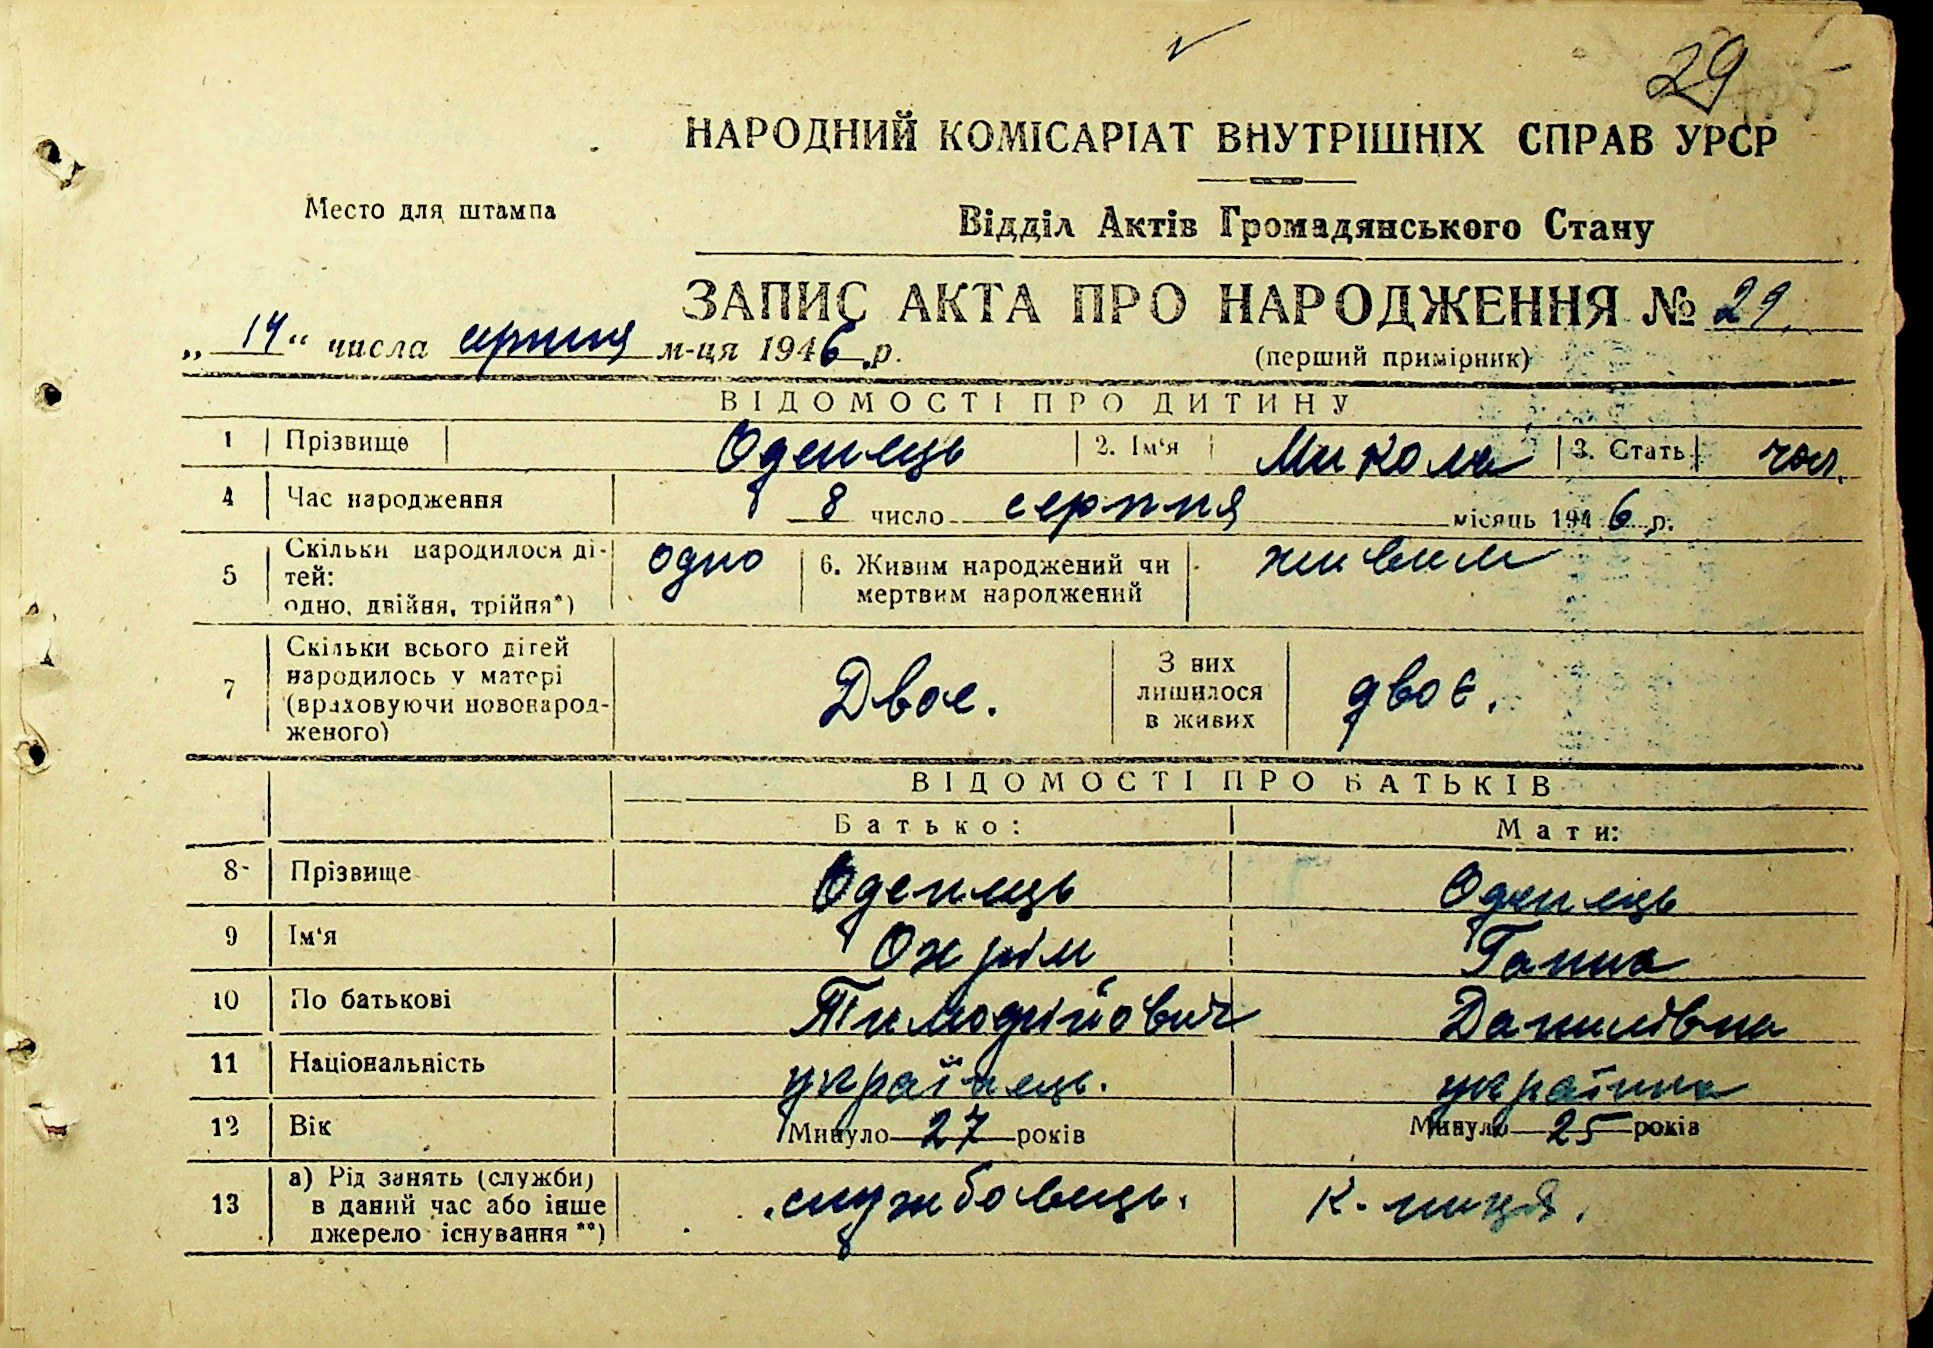 29
НАРОДНИЙ КОМІСАРІАТ ВНУТРІШНІХ СПРАВ УРСР
Место для штампа
Відділ Актів Громадянського Стану
ЗАПИС АКТА ПРО НАРОДЖЕННЯ № 29.
„14“ числа серпня м-ця 1946 р.
(перший примірник)
ВІДОМОСТІ ПРО ДИТИНУ
1 Прізвище Оденець 2. Ім‘я Микола 3. Стать чол.
4 Час народження 8 число серпня місяць 1946 р.
5 Скільки народилося ді-
тей:
одно, двійня, трійня*) одно 6. Живим народжений чи
мертвим народжений живим
7 Скільки всього дітей
народилось у матері
(враховуючи новонарод-
женого) Двое. З них
лишилося
в живих двоє.
ВІДОМОСТІ ПРО БАТЬКІВ
Батько: Мати:
8 Прізвище Оденець Оденець
9 Ім‘я Охрім Ганна
10 По батькові Тимофійович Данилівна
11 Національність українець. українка
12 Вік Минуло 27 років Минуло 25 років
13 а) Рід занять (службы)
в даний час або інше
джерело існування **) службовець. к-ниця.